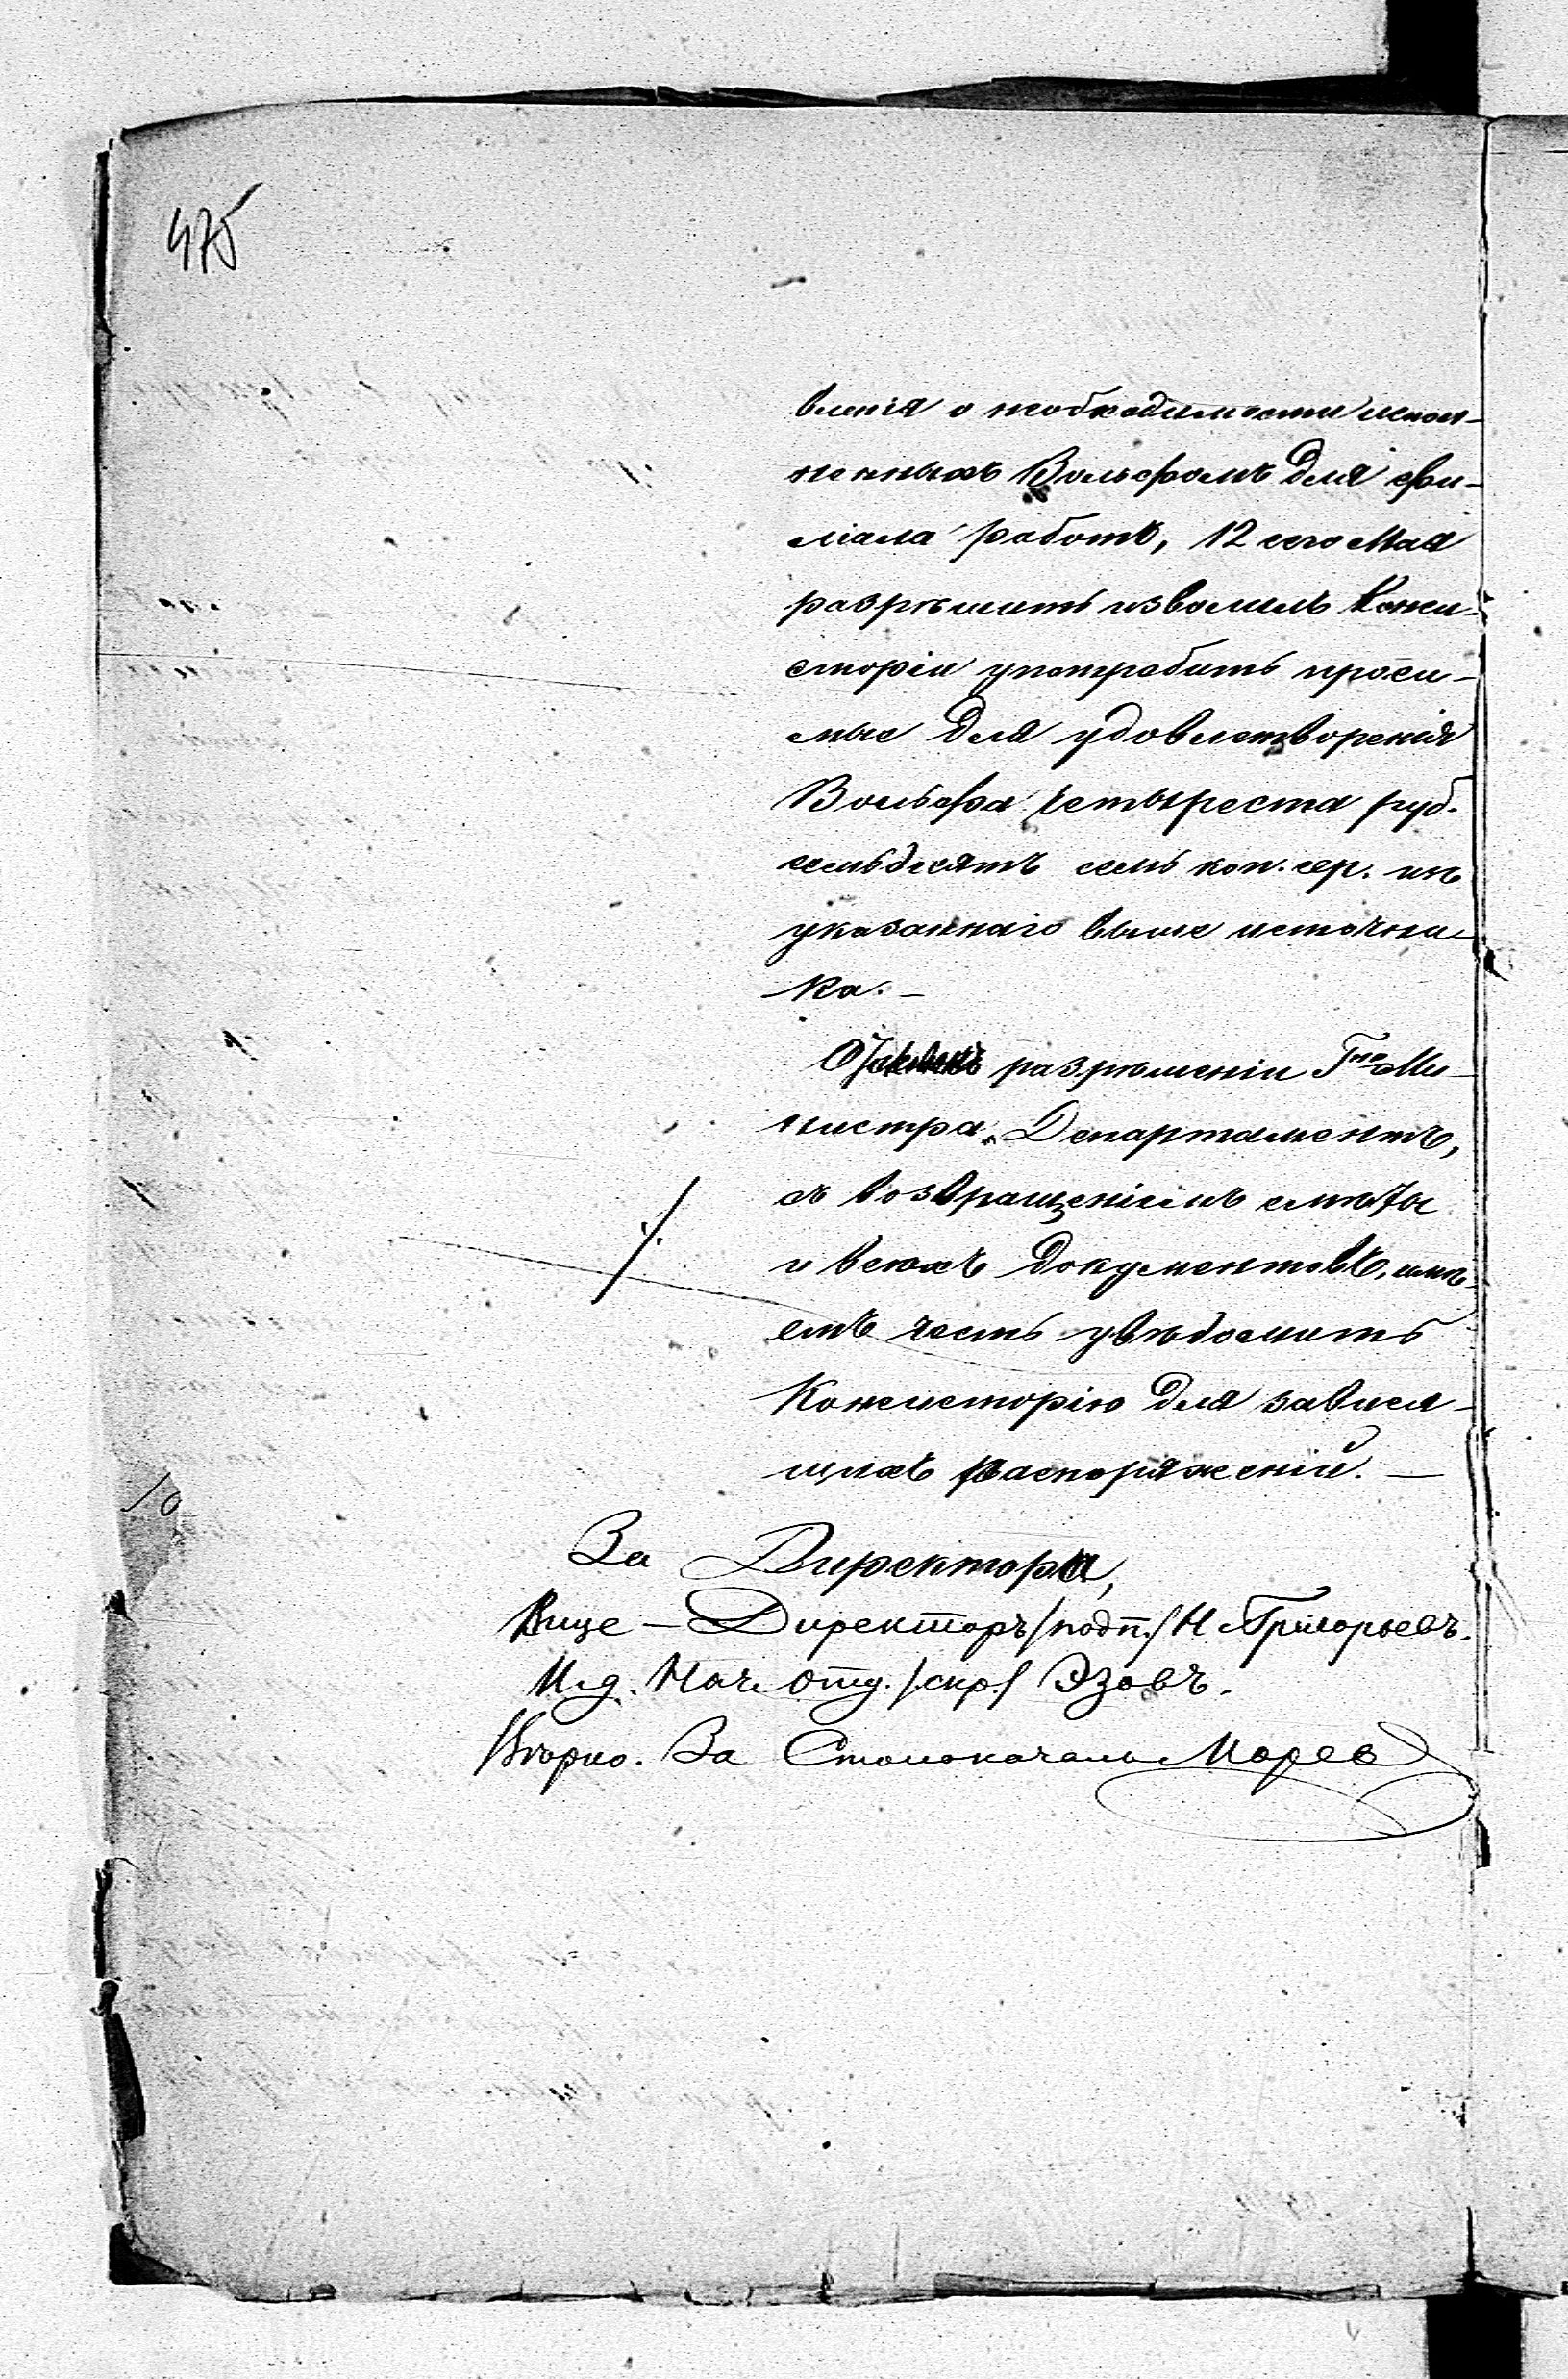 475
вленія о необходимости испол-
ненныхъ Вольфомъ для фи-
ліала работъ, 12 сего Мая
разрѣшить изволилъ Конси-
сторіи употребить проси-
мые для удовлетворенія
Вольфа четыреста руб.
семьдесятъ семь коп. сер. изъ
указаннаго выше источни-
ка. —
О разрѣшеніи Гна Ми-
нистра Департаментъ,
съ возвращеніемъ смѣты
и всѣхъ документовъ, имѣ-
етъ честь увѣдомить
Консисторію для завися-
щихъ распоряженій. —
За Директора,
Вице – Директоръ /подп./ Н Григорьевъ.
И.д. Нач. Отд. /скр./ Эзовъ.
Вѣрно. За Столоначаль